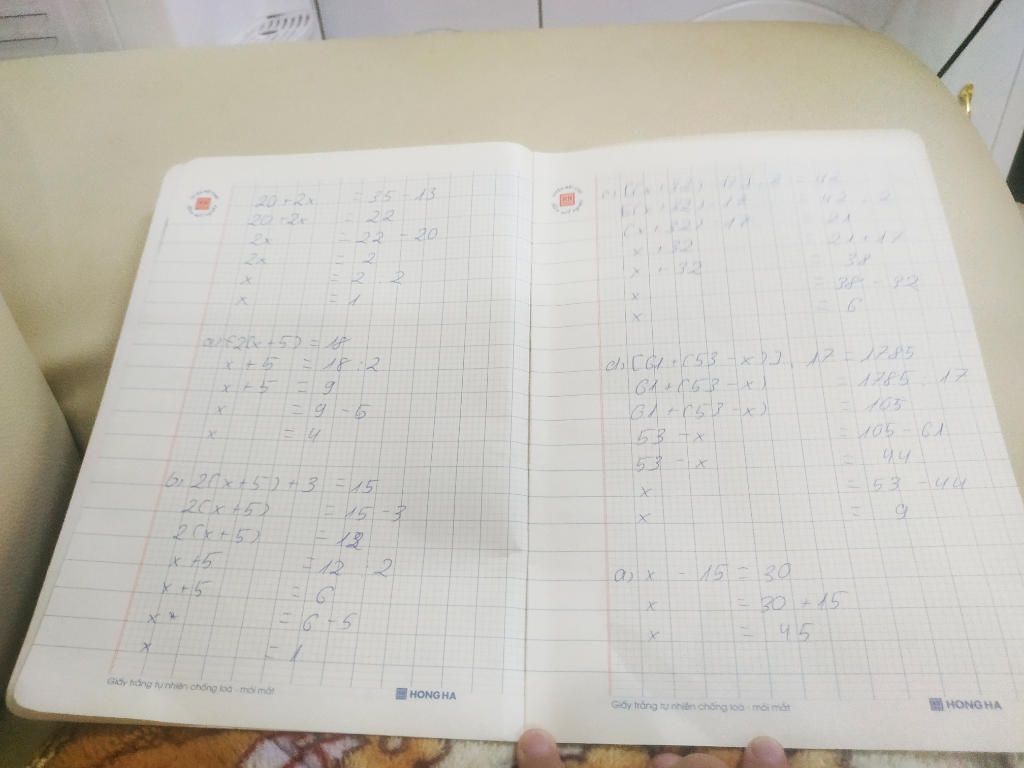 20+2x = 35 - 13
20+2x = 22
2x = 22 - 20
2x = 2
x = 2 : 2
x = 1
a, 2(x+5) = 18
x + 5 = 18 : 2
x + 5 = 9
x = 9 - 5
x = 4
b, 2(x+5) + 3 = 15
2(x+5) = 15 - 3
2(x+5) = 12
x+5 = 12 : 2
x+5 = 6
x = 6 - 5
x = 1
Giấy trắng tự nhiên chống loá - mỏi mắt
HONG HA
= 42 : 2
= 21
x + 32 = 21 + 17
x + 32 = 38
x = 38 - 32
x = 6
d, [61 + (53 - x)] . 17 = 1785
61 + (53 - x) = 1785 : 17
61 + (53 - x) = 105
53 - x = 105 - 61
53 - x = 44
x = 53 - 44
x = 9
a, x - 15 = 30
x = 30 + 15
x = 45
Giấy trắng tự nhiên chống loá - mỏi mắt
HONG HA